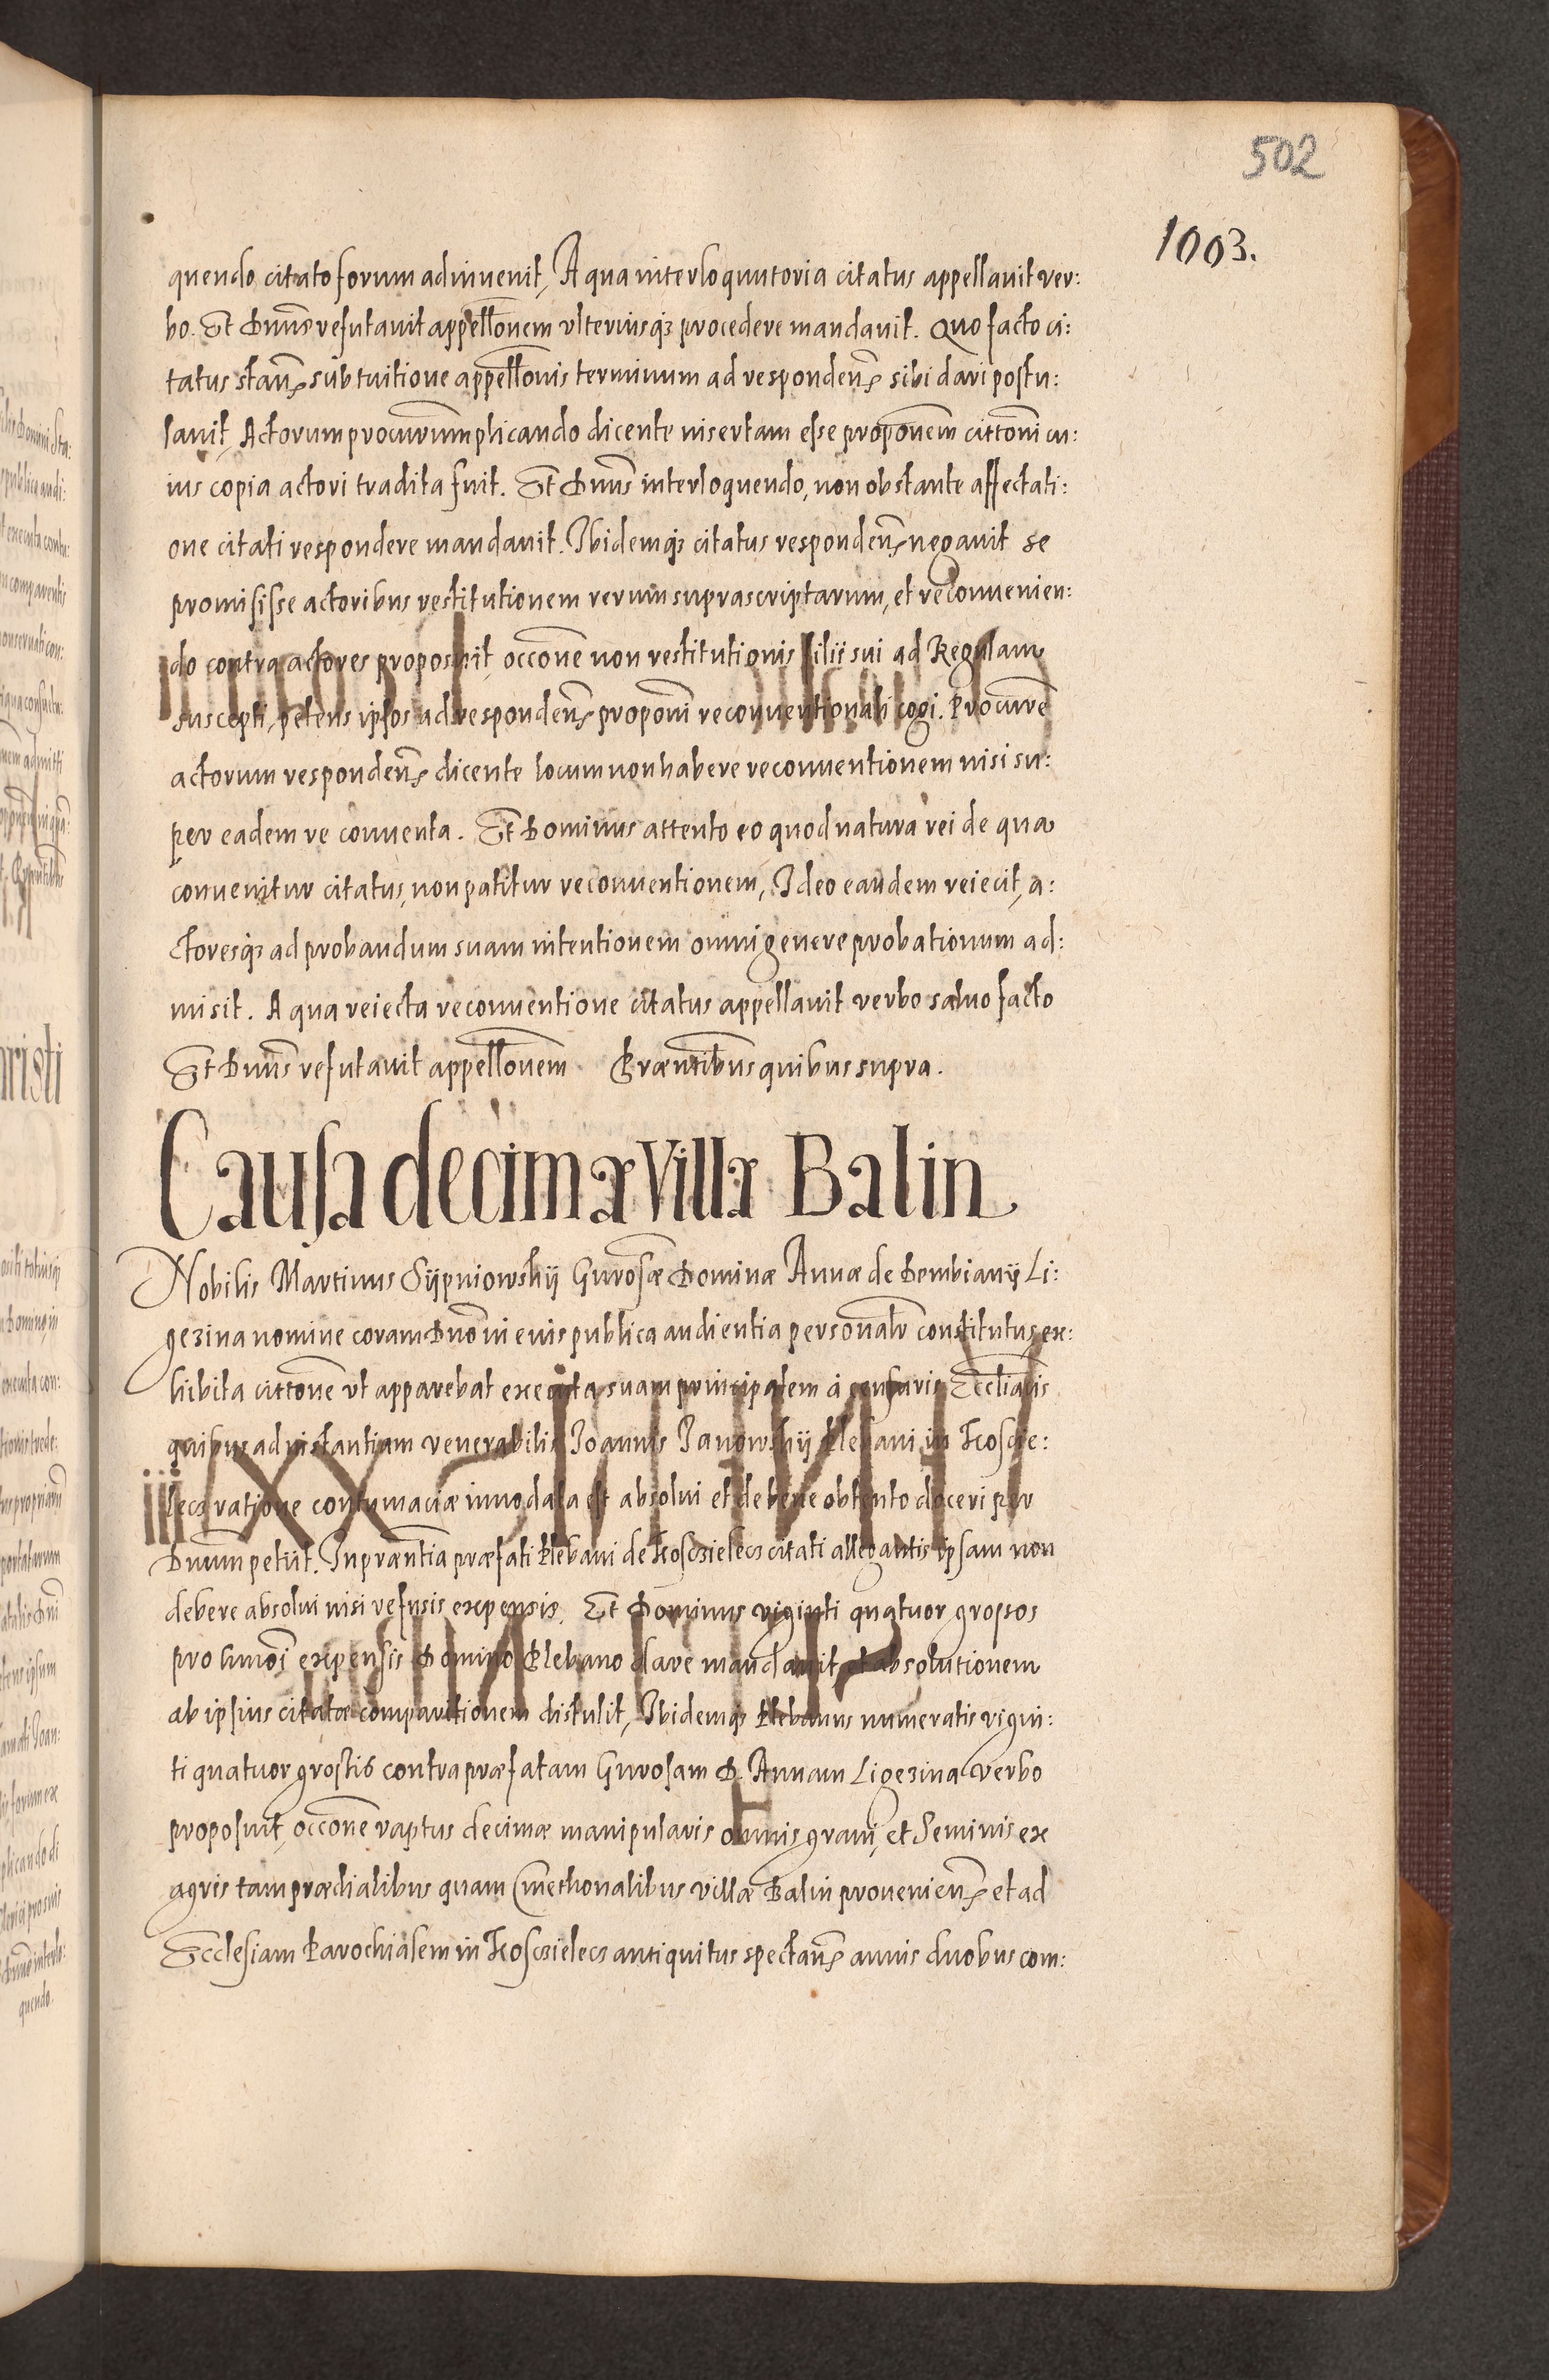 502
1003.
quendo citato forum adinvenit, A qua interloquutoria citatus appellavit ver:
bo. Et Dnus refutavit appellonem ulteriusq3 procedere mandavit. Quo facto ci:
tatus stans sub tuitione appellonis terminum ad respondens sibi dari postu:
lavit, Actorum procurum plicando dicente insertam esse proponem cittoni cu:
ius copia actori tradita fuit. Et Dnus interloquendo, non obstante affectati:
one citati respondere mandavit. Ibidemq3 citatus respondens negavit se
promisisse actoribus restitutionem rerum suprascriptarum, et reconvenien:
do contra actores proposuit, occone non restitutionis filii sui ad Regulam
suscepti, petens ipsos ad respondens proponi reconventionali cogi. Procure
actorum respondens dicente locum non habere reconventionem nisi su:
per eadem re conventa. Et Dominus attento eo quod natura rei de qua
convenitur citatus, non patitur reconventionem, Ideo eandem reiecit, a:
ctoresq3 ad probandum suam intentionem omni genere probationum ad:
misit. A qua reiecta reconventione citatus appellavit verbo salvo facto
Et Dnus refutavit appellonem Præntibus quibus supra.
Causa decimæ Villæ Balin
Nobilis Martinus Sijpniowskij Gnrosæ Dominæ Annæ de Dembianij Li:
gezina nomine coram Dno in eius publica audientia personalr constitutus ex:
hibita cittone ut apparebat executa suam principalem a censuris Eccliacis
quibus ad instantiam venerabilis Joannis Janowskij Plebani in Koscie:
lecz ratione contumaciæ innodata est absolvi et debere obtento doceri per
Dnum petiit. In præntia præfati Plebani de Kosczielecz citati allegantis ipsam non
debere absolvi nisi refusis expensis. Et Dominus viginti quatuor grossos
pro hmoi expensis Domino Plebano dare mandavit, et absolutionem
ab ipsius citatæ comparitionem distulit, Ibidemq3 Plebanus numeratis vigin:
ti quatuor grossis contra præfatam Gnrosam D. Annam Ligezina verbo
proposuit, occone raptus decimæ manipularis omnis grani, et Seminis ex
agris tam prædialibus quam Cmethonalibus villæ Balin proveniens et ad
Ecclesiam Parochialem in Kosczielecz antiquitus spectans annis duobus com: